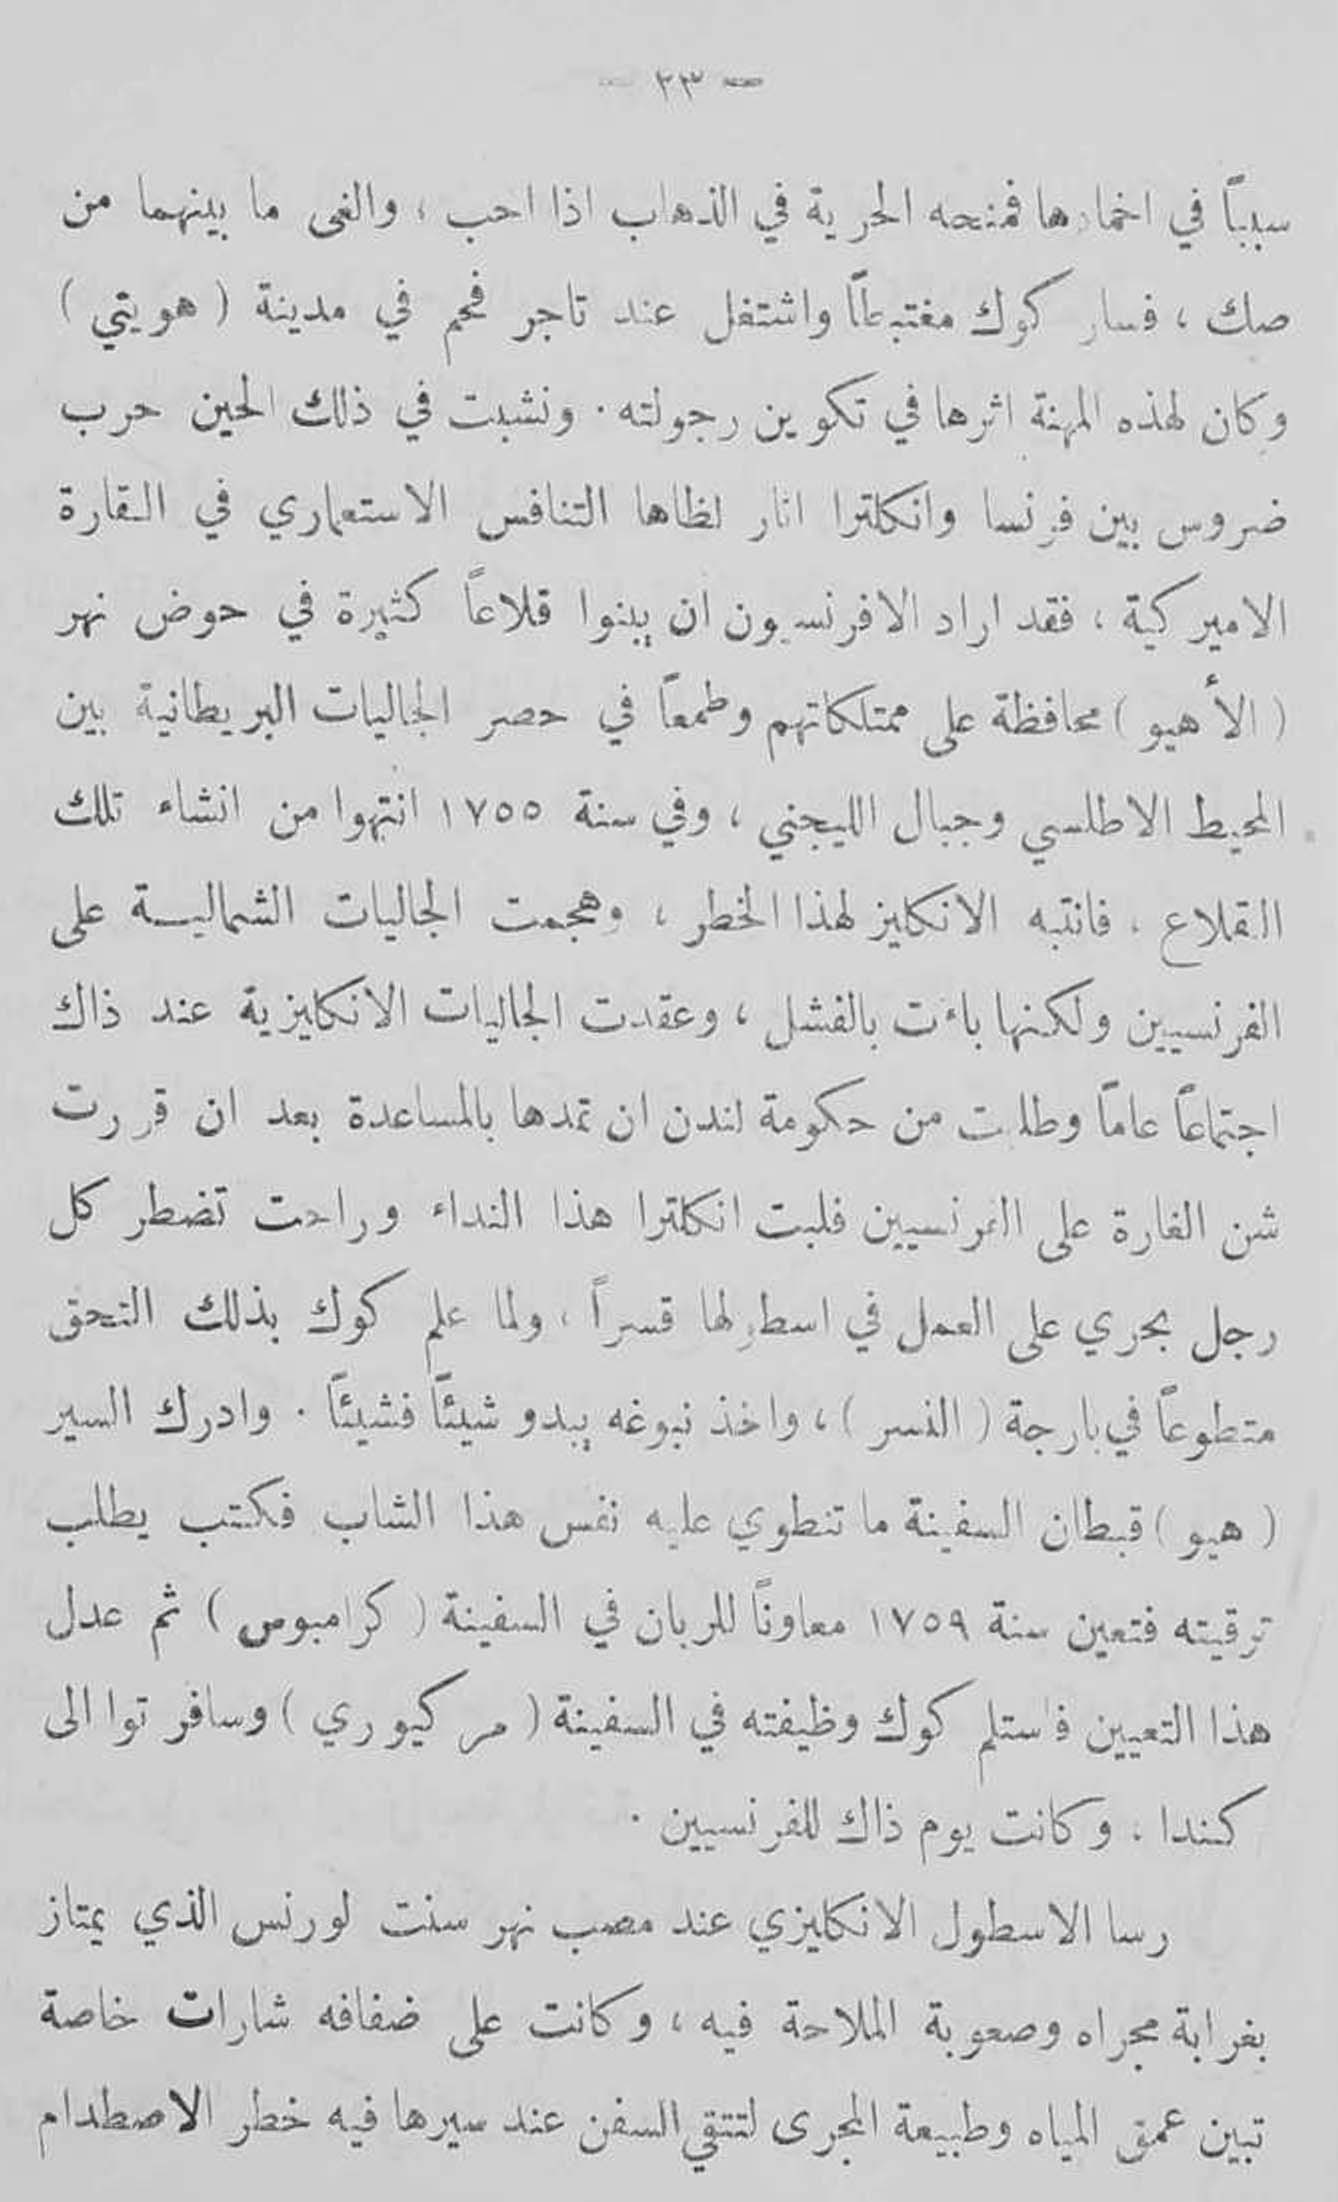 — ٣٣ —
سبباً في اخمادها فمنحه الحرية في الذهاب اذا احب ، والغى ما بينهما من
صك ، فسار كوك مغتبطاً واشتغل عند تاجر فحم في مدينة ( هويتي )
وكان لهذه المهنة اثرها في تكوين رجولته . ونشبت في ذلك الحين حرب
ضروس بين فرنسا وانكلترا اثار لظاها التنافس الاستعماري في القارة
الاميركية ، فقد اراد الافرنسيون ان يبنوا قلاعاً كثيرة في حوض نهر
( الأهيو ) محافظة على ممتلكاتهم وطمعاً في حصر الجاليات البريطانية بين
المحيط الاطلسي وجبال الليجني ، وفي سنة ١٧٥٥ انتهوا من انشاء تلك
القلاع ، فانتبه الانكليز لهذا الخطر ، وهجمت الجاليات الشمالية على
الفرنسيين ولكنها باءت بالفشل ، وعقدت الجاليات الانكليزية عند ذاك
اجتماعاً عاماً وطلبت من حكومة لندن ان تمدها بالمساعدة بعد ان قررت
شن الغارة على الفرنسيين فلبت انكلترا هذا النداء وراحت تضطر كل
رجل بحري على العمل في اسطولها قسراً ، ولما علم كوك بذلك التحق
متطوعاً في بارجة ( النسر ) ، واخذ نبوغه يبدو شيئاً فشيئاً . وادرك السير
( هيو ) قبطان السفينة ما تنطوي عليه نفس هذا الشاب فكتب يطلب
ترقيته فتعين سنة ١٧٥٩ معاوناً للربان في السفينة ( كرامبوس ) ثم عدل
هذا التعيين فاستلم كوك وظيفته في السفينة ( مركيوري ) وسافر توا الى
كندا ، وكانت يوم ذاك للفرنسيين .
رسا الاسطول الانكليزي عند مصب نهر سنت لورنس الذي يمتاز
بغرابة مجراه وصعوبة الملاحة فيه ، وكانت على ضفافه شارات خاصة
تبين عمق المياه وطبيعة المجرى لتتقي السفن عند سيرها فيه خطر الاصطدام